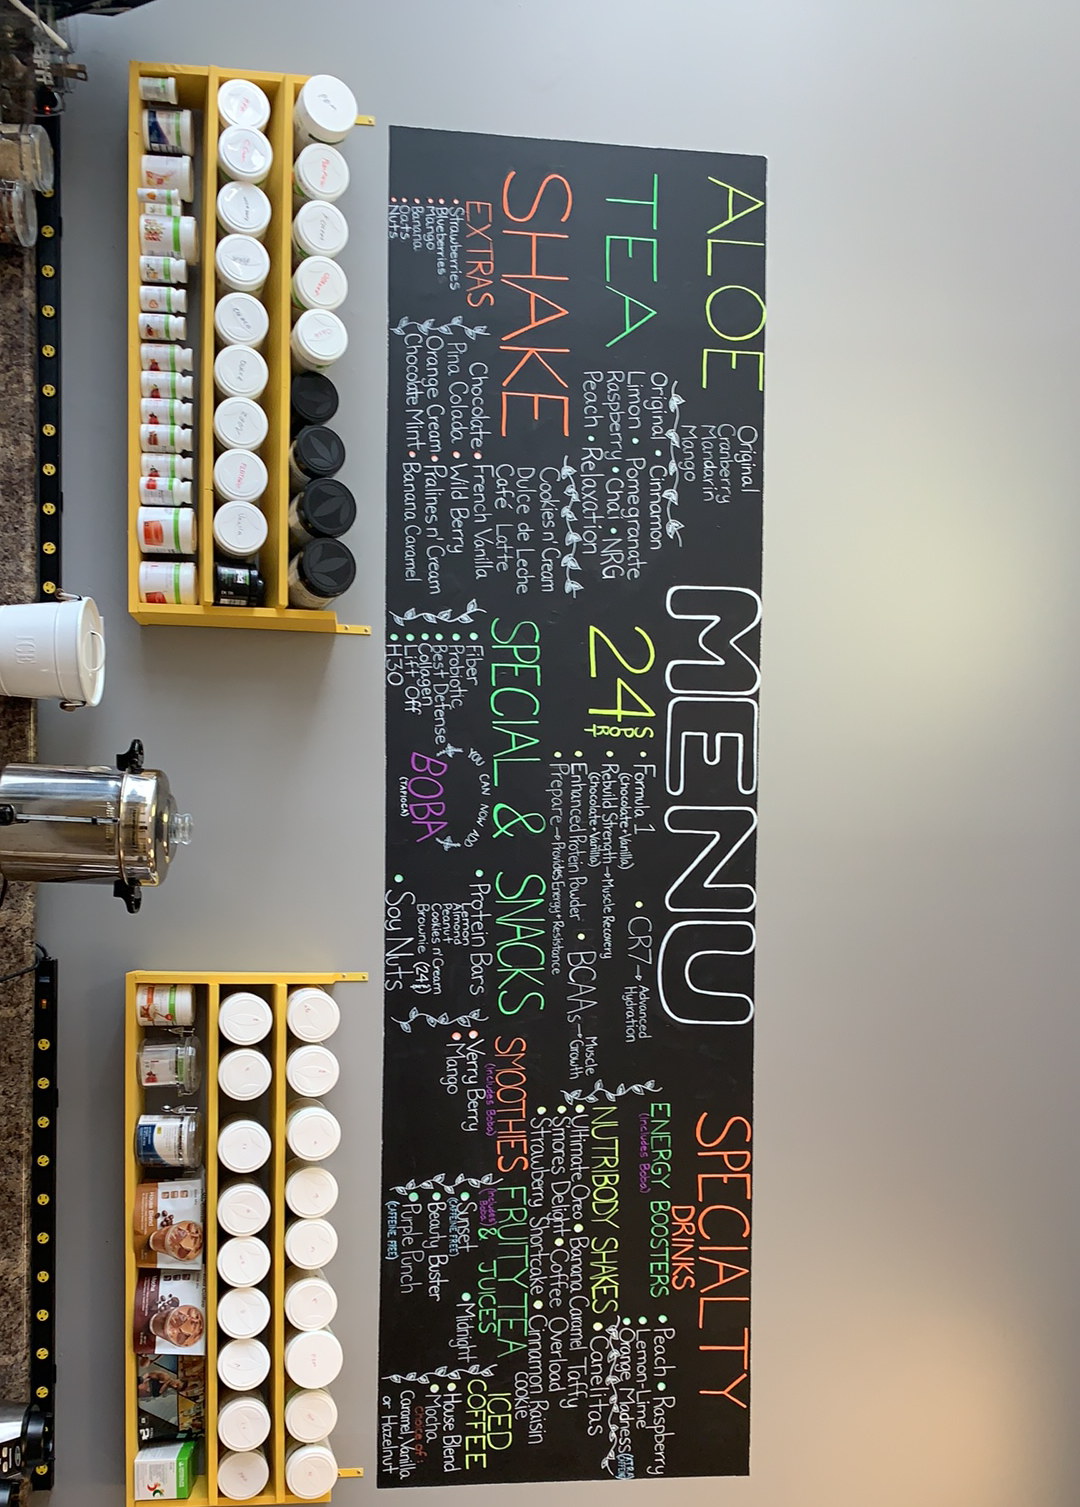 MENU
ALOE
Original
Cranberry
Mandarin
Mango
TEA
Original • Cinnamon
Limon • Pomegranate
Raspberry • Chai • NRG
Peach • Relaxation
SHAKE
Cookies n' Cream
Dulce de Leche
Café Latte
Chocolate • French Vanilla
Pina Colada • Wild Berry
Orange Cream • Pralines n' Cream
Chocolate Mint • Banana Caramel
EXTRAS
• Strawberries
• Blueberries
• Mango
• Banana
• Oats
• Nuts
24 SPORT
• Formula 1
(Chocolate • Vanilla)
• Rebuild Strength → Muscle Recovery
(Chocolate • Vanilla)
• Enhanced Protein Powder
• Prepare → Provides Energy + Resistance
• CR7 → Advanced
Hydration
• BCAAs → Muscle
Growth
SPECIAL & SNACKS
• Fiber
• Probiotic
• Best Defense
• Collagen
• Lift Off
• H30
YOU CAN NOW
BOBA
(TAPIOCA)
• Protein Bars
Lemon
Almond
Peanut
Cookies n' Cream
Brownie (24)
• Soy Nuts
SPECIALTY
DRINKS
ENERGY BOOSTERS
(includes Boba)
• Peach • Raspberry
• Lemon-Lime
• Orange Madness
NUTRIBODY SHAKES
• Canelitas
• Ultimate Oreo • Banana Caramel Taffy
• Smores Delight • Coffee Overload
• Strawberry Shortcake • Cinnamon Raisin
Cookie
SMOOTHIES
(includes Boba)
• Verry Berry
• Mango
FRUITY TEA
& JUICES
(includes Boba)
• Sunset
(CAFFEINE FREE)
• Beauty Buster
• Purple Punch
(CAFFEINE FREE)
• Midnight
ICED
COFFEE
• House Blend
• Mocha
Choice of:
Caramel, Vanilla
or Hazelnut
ICE